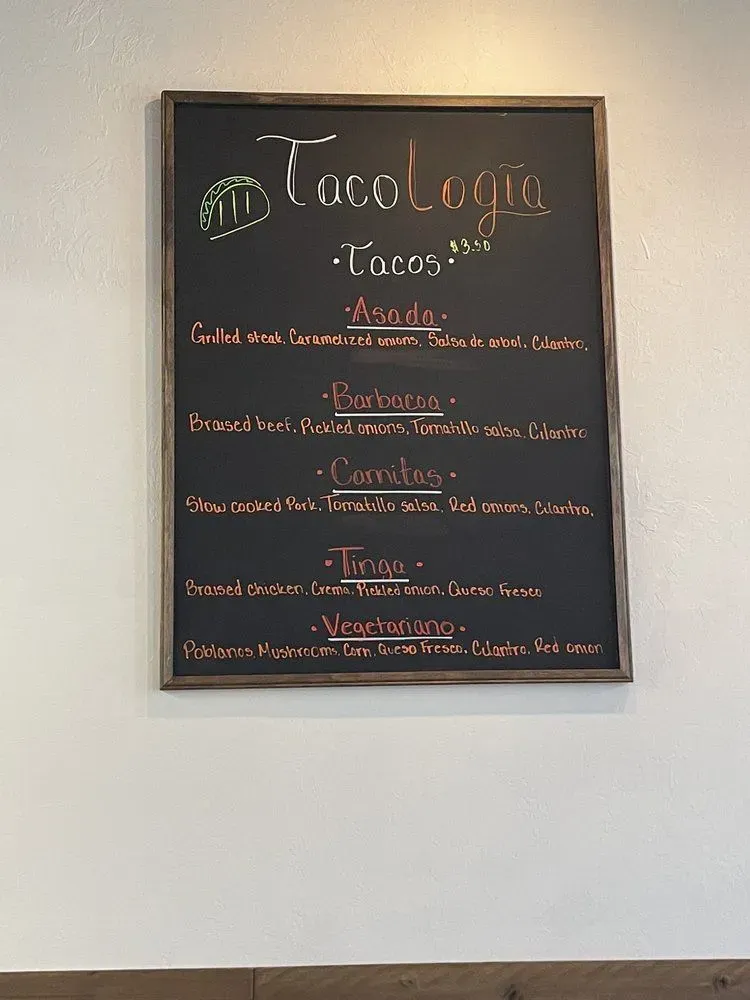 TacoLogía
·Tacos· $3.50
·Asada·
Grilled steak, Caramelized onions, Salsa de arbol, Cilantro,
·Barbacoa·
Braised beef, Pickled onions, Tomatillo salsa, Cilantro
·Carnitas·
Slow cooked Pork, Tomatillo salsa, Red onions, Cilantro,
·Tinga·
Braised chicken, Crema, Pickled onion, Queso Fresco
·Vegetariano·
Poblanos, Mushrooms, Corn, Queso Fresco, Cilantro, Red onion